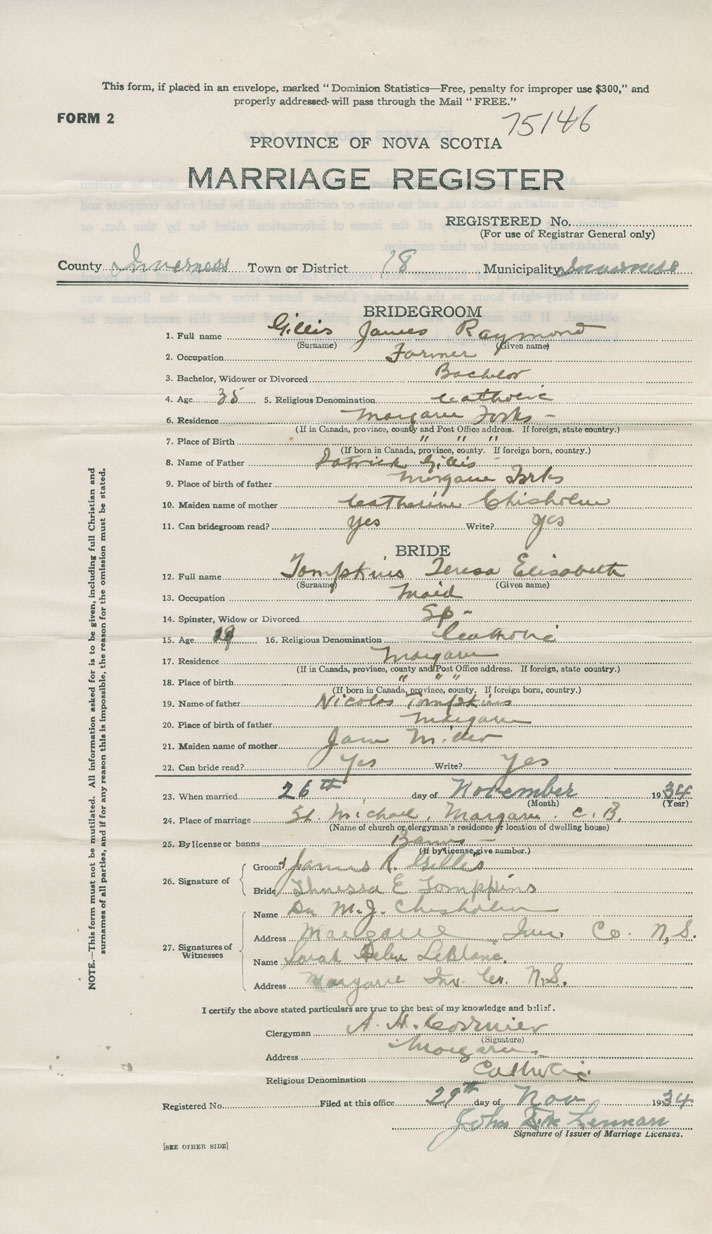 This form, if placed in an envelope, marked " Dominion Statistics—Free, penalty for improper use $300," and
properly addressed will pass through the Mail " FREE."
FORM 2
75146
PROVINCE OF NOVA SCOTIA
MARRIAGE REGISTER
REGISTERED No.
(For use of Registrar General only)
County Inverness Town or District 18 Municipality Inverness
BRIDEGROOM
1. Full name Gillis James Raymond
(Surname) (Given name)
2. Occupation Farmer
3. Bachelor, Widower or Divorced Bachelor
4. Age 35 5. Religious Denomination Catholic
6. Residence Margaree Forks -
(If in Canada, province, county and Post Office address. If foreign, state country.)
7. Place of Birth " " "
(If born in Canada, province, county. If foreign born, country.)
8. Name of Father Patrick Gillis
9. Place of birth of father Margaree Forks
10. Maiden name of mother Catherine Chisholm
11. Can bridegroom read? yes Write? yes
BRIDE
12. Full name Tompkins Teresa Elisabeth
(Surname) (Given name)
13. Occupation Maid
14. Spinster, Widow or Divorced Sp -
15. Age 16. Religious Denomination Catholic
17. Residence Margaree
(If in Canada, province, county and Post Office address. If foreign, state country.)
18. Place of birth " " "
(If born in Canada, province, county. If foreign born, country.)
19. Name of father Nicolas Tompkins
20. Place of birth of father Margaree
21. Maiden name of mother Jane
22. Can bride read? Yes Write? Yes
23. When married 26th day of November 1934
(Month) (Year)
24. Place of marriage St. Michael, Margaree C. B.
(Name of church or clergyman's residence or location of dwelling house)
25. By license or banns Banns -
(If by license, give number.)
26. Signature of
Groom James R. Gillis
Bride Theressa E Tompkins
27. Signatures of Witnesses
Name Dr M. J. Chisholm
Address Margaree Inv. Co. N.S.
Name Sarah Helen LeBlanc
Address Margaree Inv. Co. N.S.
I certify the above stated particulars are true to the best of my knowledge and belief.
Clergyman A. H. Cormier
(Signature)
Address Margaree
Religious Denomination Catholic
Registered No. Filed at this office 29th day of Nov 1934
John McLennan
Signature of Issuer of Marriage Licenses.
[SEE OTHER SIDE]
NOTE.—This form must not be mutilated. All information asked for is to be given, including full Christian and
surnames of all parties, and if for any reason this is impossible, the reason for the omission must be stated.